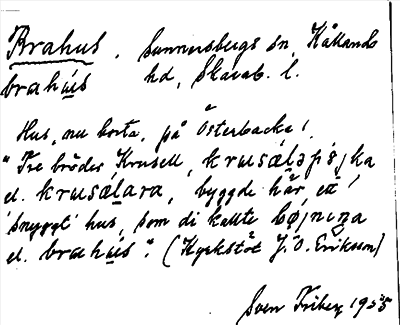 Brahus. Sunnersbergs sn, Kållands
brahu̇́s hd, Skarab. l.
Hus, nu borta, på Österbacka!
"Tre bröder Krusell, krusáləpåjka
el. krusálara, byggde här ett
'snyggt' hus, som di kallte
el. brahu̇́s". (Kyrkstöt J. O. Eriksson)
Sven Friberg 1955